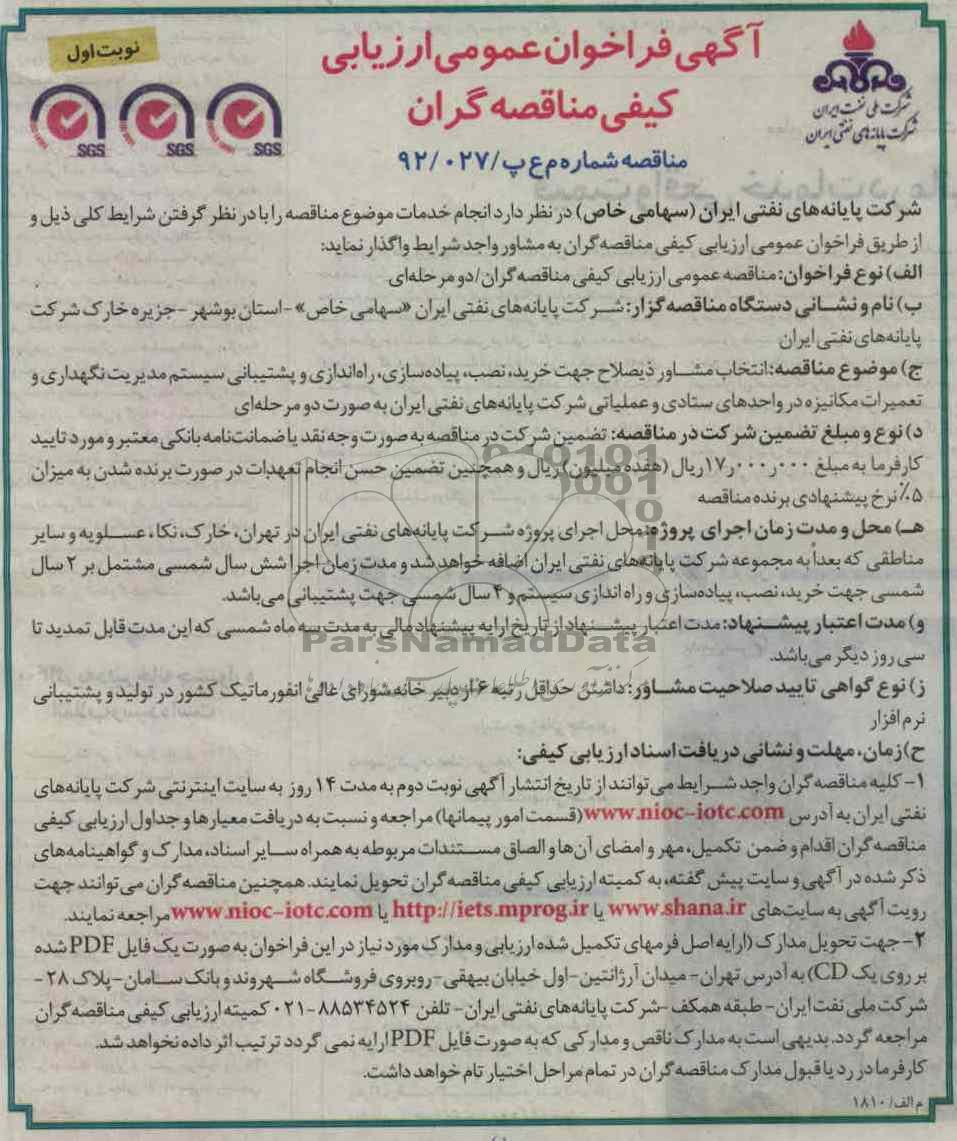 نوبت اول
آگهی فراخوان عمومی ارزیابی
کیفی مناقصه گران
مناقصه شماره م ع پ/۹۲/۰۲۷
شرکت ملی نفت ایران
شرکت پایانه‌های نفتی ایران
SGS
SGS
SGS
شرکت پایانه‌های نفتی ایران (سهامی خاص) در نظر دارد انجام خدمات موضوع مناقصه را با در نظر گرفتن شرایط کلی ذیل و
از طریق فراخوان عمومی ارزیابی کیفی مناقصه گران به مشاور واجد شرایط واگذار نماید:
الف) نوع فراخوان: مناقصه عمومی ارزیابی کیفی مناقصه گران/دو مرحله‌ای
ب) نام و نشانی دستگاه مناقصه گزار: شرکت پایانه‌های نفتی ایران «سهامی خاص» -استان بوشهر -جزیره خارک شرکت
پایانه‌های نفتی ایران
ج) موضوع مناقصه: انتخاب مشاور ذیصلاح جهت خرید، نصب، پیاده‌سازی، راه‌اندازی و پشتیبانی سیستم مدیریت نگهداری و
تعمیرات مکانیزه در واحدهای ستادی و عملیاتی شرکت پایانه‌های نفتی ایران به صورت دو مرحله‌ای
د) نوع و مبلغ تضمین شرکت در مناقصه: تضمین شرکت در مناقصه به صورت وجه نقد یا ضمانت‌نامه بانکی معتبر و مورد تایید
کارفرما به مبلغ ۱۷٫۰۰۰٫۰۰۰ ریال (هفده میلیون) ریال و همچنین تضمین حسن انجام تعهدات در صورت برنده شدن به میزان
۵٪ نرخ پیشنهادی برنده مناقصه
هـ) محل و مدت زمان اجرای پروژه: محل اجرای پروژه شرکت پایانه‌های نفتی ایران در تهران، خارک، نکا، عسلویه و سایر
مناطقی که بعداً به مجموعه شرکت پایانه‌های نفتی ایران اضافه خواهد شد و مدت زمان اجرا شش سال شمسی مشتمل بر ۲ سال
شمسی جهت خرید، نصب، پیاده‌سازی و راه اندازی سیستم و ۴ سال شمسی جهت پشتیبانی می‌باشد.
و) مدت اعتبار پیشنهاد: مدت اعتبار پیشنهاد از تاریخ ارایه پیشنهاد مالی به مدت سه ماه شمسی که این مدت قابل تمدید تا
سی روز دیگر می‌باشد.
ParsNamadData
ز) نوع گواهی تایید صلاحیت مشاور: داشتن حداقل رتبه ۶ از دبیر خانه شورای عالی انفورماتیک کشور در تولید و پشتیبانی
نرم افزار
ح) زمان، مهلت و نشانی دریافت اسناد ارزیابی کیفی:
۱- کلیه مناقصه گران واجد شرایط می توانند از تاریخ انتشار آگهی نوبت دوم به مدت ۱۴ روز به سایت اینترنتی شرکت پایانه‌های
نفتی ایران به آدرس www.nioc-iotc.com (قسمت امور پیمانها) مراجعه و نسبت به دریافت معیارها و جداول ارزیابی کیفی
مناقصه گران اقدام و ضمن تکمیل، مهر و امضای آن‌ها و الصاق مستندات مربوطه به همراه سایر اسناد، مدارک و گواهینامه‌های
ذکر شده در آگهی و سایت پیش گفته، به کمیته ارزیابی کیفی مناقصه گران تحویل نمایند. همچنین مناقصه گران می توانند جهت
رویت آگهی به سایت‌های www.shana.ir یا http://iets.mprog.ir یا www.nioc-iotc.com مراجعه نمایند.
۲- جهت تحویل مدارک (ارایه اصل فرمهای تکمیل شده ارزیابی و مدارک مورد نیاز در این فراخوان به صورت یک فایل PDF شده
بر روی یک CD) به آدرس تهران- میدان آرژانتین-اول خیابان بیهقی-روبروی فروشگاه شهروند و بانک سامان- پلاک ۲۸ -
شرکت ملی نفت ایران- طبقه همکف -شرکت پایانه‌های نفتی ایران- تلفن ۸۸۵۳۴۵۲۴-۰۲۱ کمیته ارزیابی کیفی مناقصه گران
مراجعه گردد. بدیهی است به مدارک ناقص و مدارکی که به صورت فایل PDF ارایه نمی گردد ترتیب اثر داده نخواهد شد.
کارفرما در رد یا قبول مدارک مناقصه گران در تمام مراحل اختیار تام خواهد داشت.
م الف/۱۸۱۰